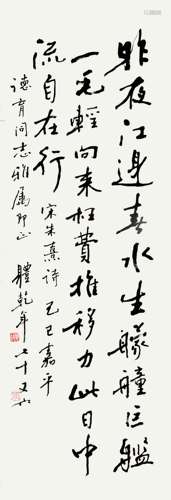 昨夜江邊春水生艨艟巨艦
一毛輕向來枉費推移力此日中
流自在行
宋朱熹詩 己巳嘉平
德育同志雅属即正
體乾年七十又六